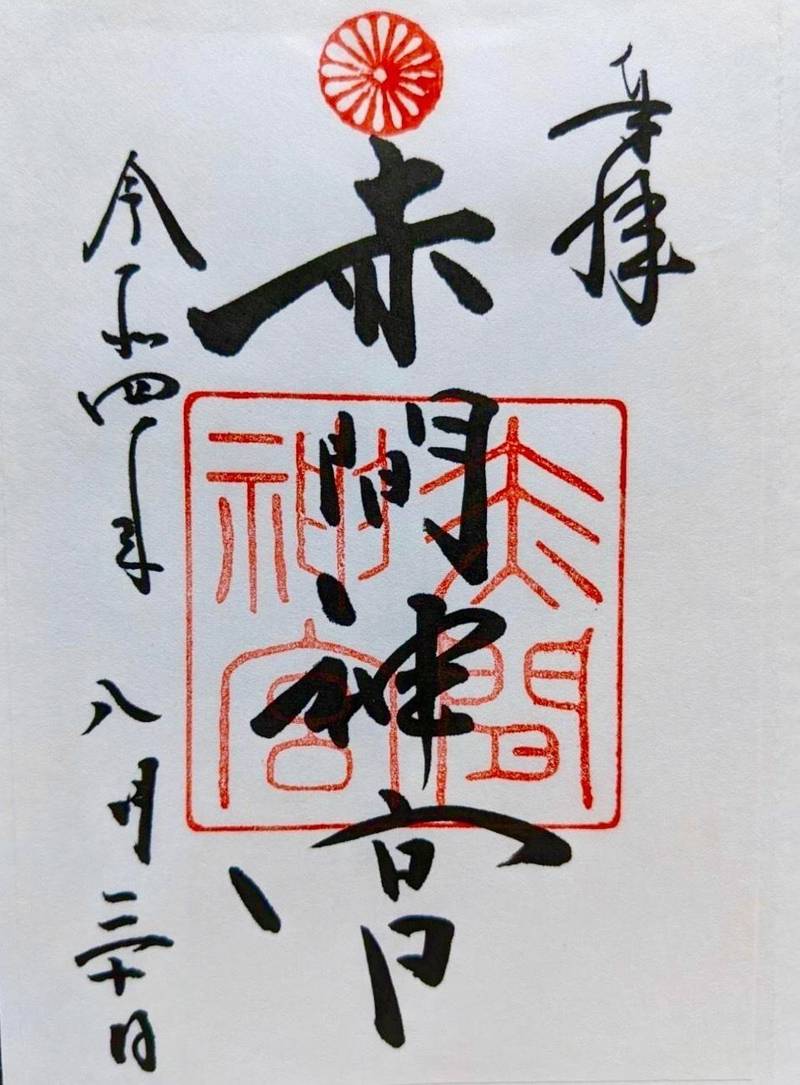 奉拝
赤間神宮
令和四年八月三十日
赤間
神宮